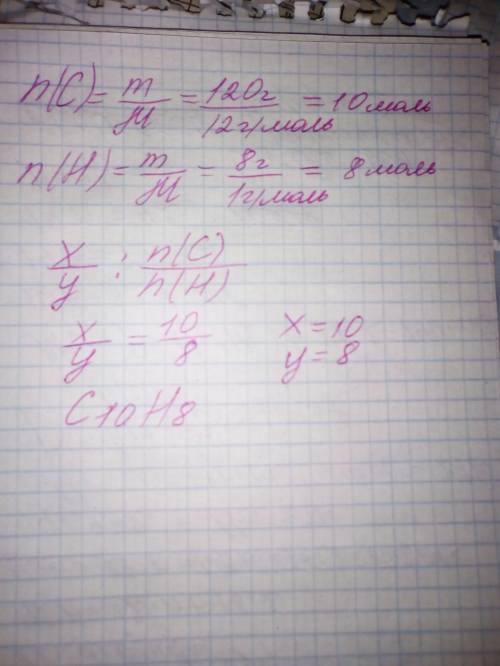 n(C) = m/M = 120г/12г/моль = 10 моль
n(H) = m/M = 8г/1г/моль = 8 моль
x/y : n(C)/n(H)
x/y = 10/8 x = 10
y = 8
C10H8